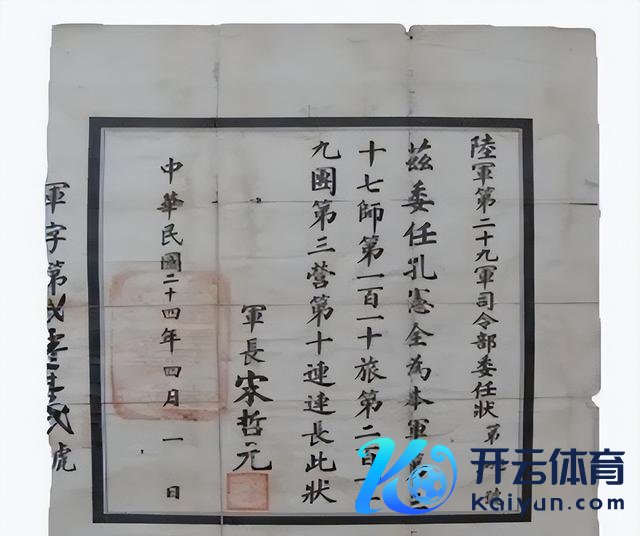 陸軍第二十九軍司令部委任狀 第
茲委任孔憲全為本軍第三
十七師第一百一十旅第二百一十
九團第三營第十連連長此狀
軍長宋哲元
中華民國二十四年四月一日
軍字第
號
开云体育
Kaiyun.com